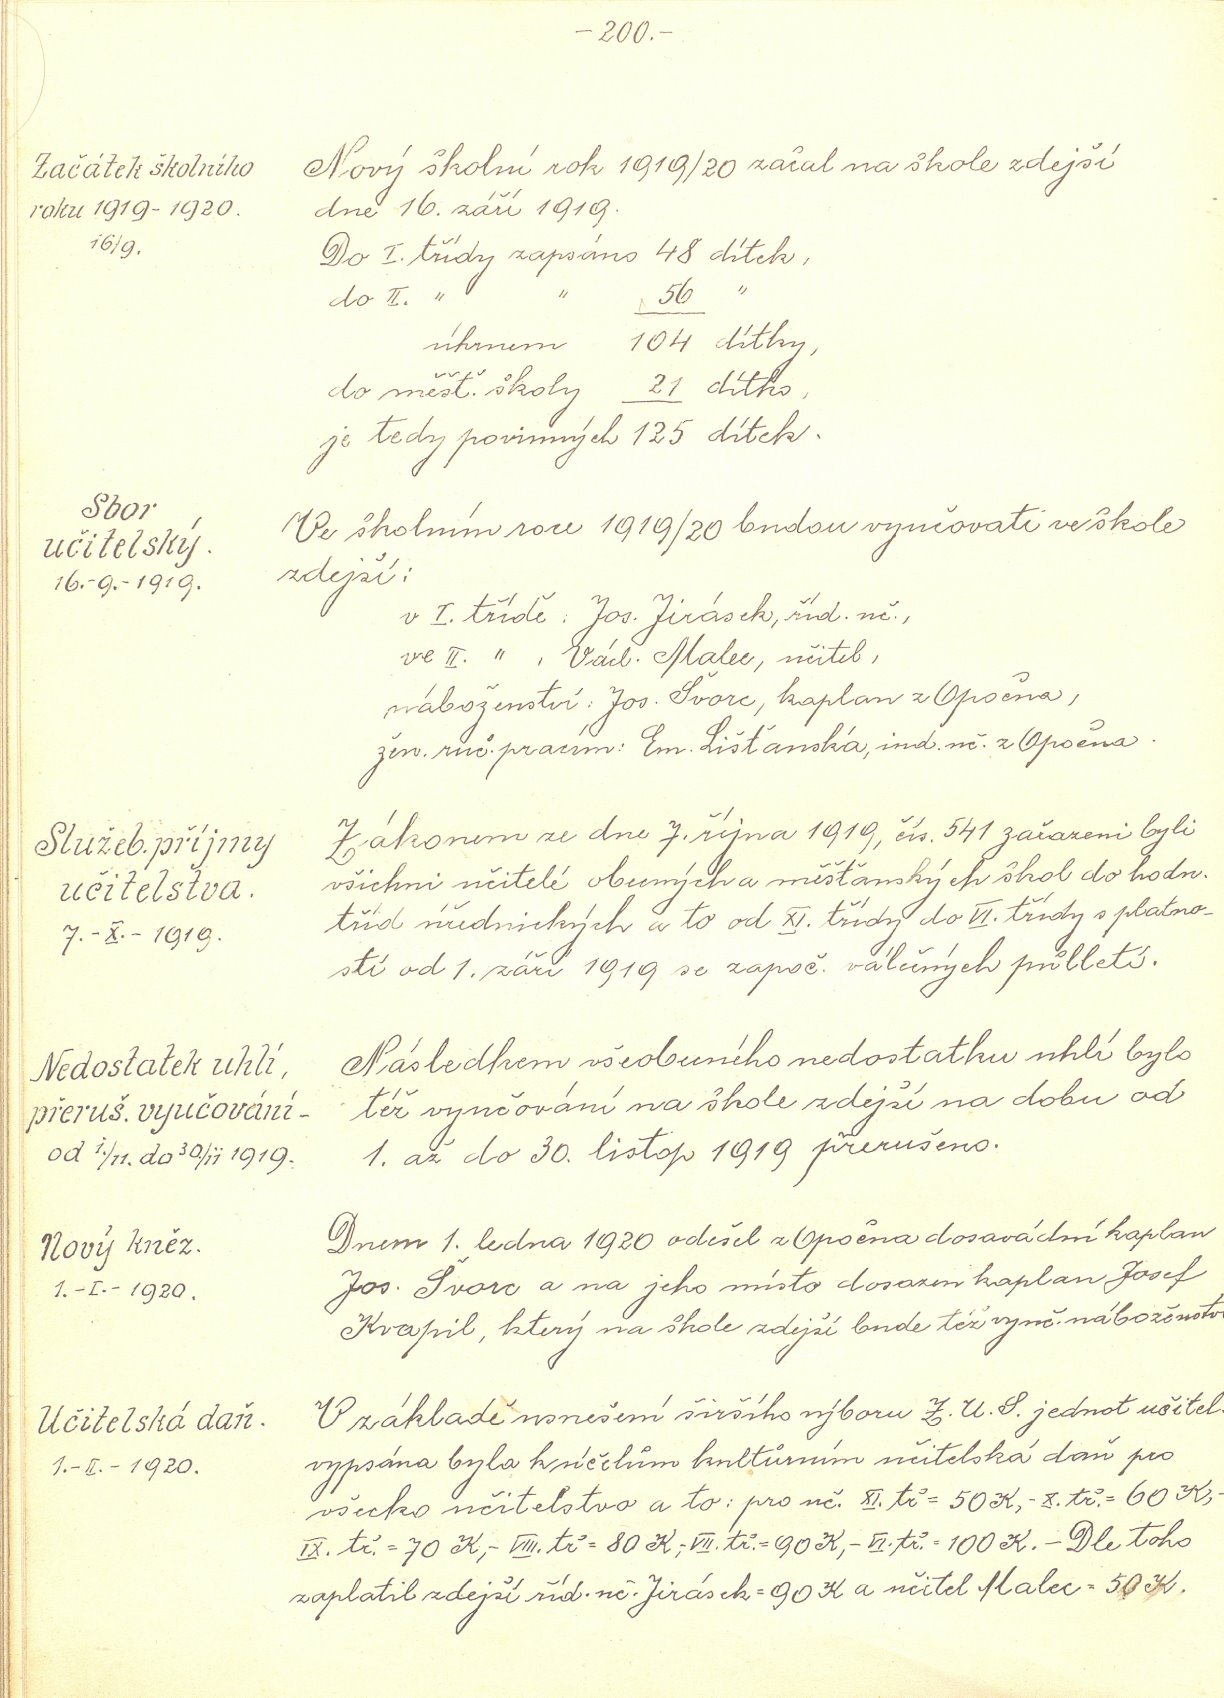 - 200. -
Začátek školního
roku 1919 - 1920.
16/9.
Nový školní rok 1919/20 začal na škole zdejší
dne 16. září 1919.
Do I. třídy zapsáno 48 dítek,
do II. " " 56 "
úhrnem 104 dítky,
do měšť. školy 21 dítko,
je tedy povinných 125 dítek.
Sbor
učitelský.
16.-9.-1919.
Ve školním roce 1919/20 budou vyučovati ve škole
zdejší:
v I. třídě: Jos. Jirásek, říd. uč.,
ve II. " , Václ. Malec, učitel,
náboženství: Jos. Švorc, kaplan z Opočna,
žen. ruč. pracím: Em. Lišťanská, ind. uč. z Opočna.
Služeb. příjmy
učitelstva.
7.-X.-1919.
Zákonem ze dne 7. října 1919, čís. 541 zařazeni byli
všichni učitelé obecných a měšťanských škol do hodn.
tříd úřednických a to od XI. třídy do VI. třídy s platno-
stí od 1. září 1919 se započ. válečných půlletí.
Nedostatek uhlí,
přeruš. vyučování -
od 1./11. do 30/11 1919.
Následkem všeobecného nedostatku uhlí bylo
též vyučování na škole zdejší na dobu od
1. až do 30. listop 1919 přerušeno.
Nový kněz.
1.-I.-1920.
Dnem 1. ledna 1920 odešel z Opočna dosavádní kaplan
Jos. Švorc a na jeho místo dosazen kaplan Josef
Kvapil, který na škole zdejší bude též vyuč. náboženství
Učitelská daň.
1.-II.-1920.
V základě usnešení širšího výboru Z. U. S. jednot učitel.
vypsána byla k účelům kulturním učitelská daň pro
všecko učitelstvo a to: pro uč. XI. tř = 50 K,- X. tř. = 60 K,-
IX. tř. = 70 K,- VIII. tř = 80 K,- VII. tř. = 90 K,- VI. tř. = 100 K. - Dle toho
zaplatil zdejší říd. uč. Jirásek = 90 K a učitel Malec = 50 K.